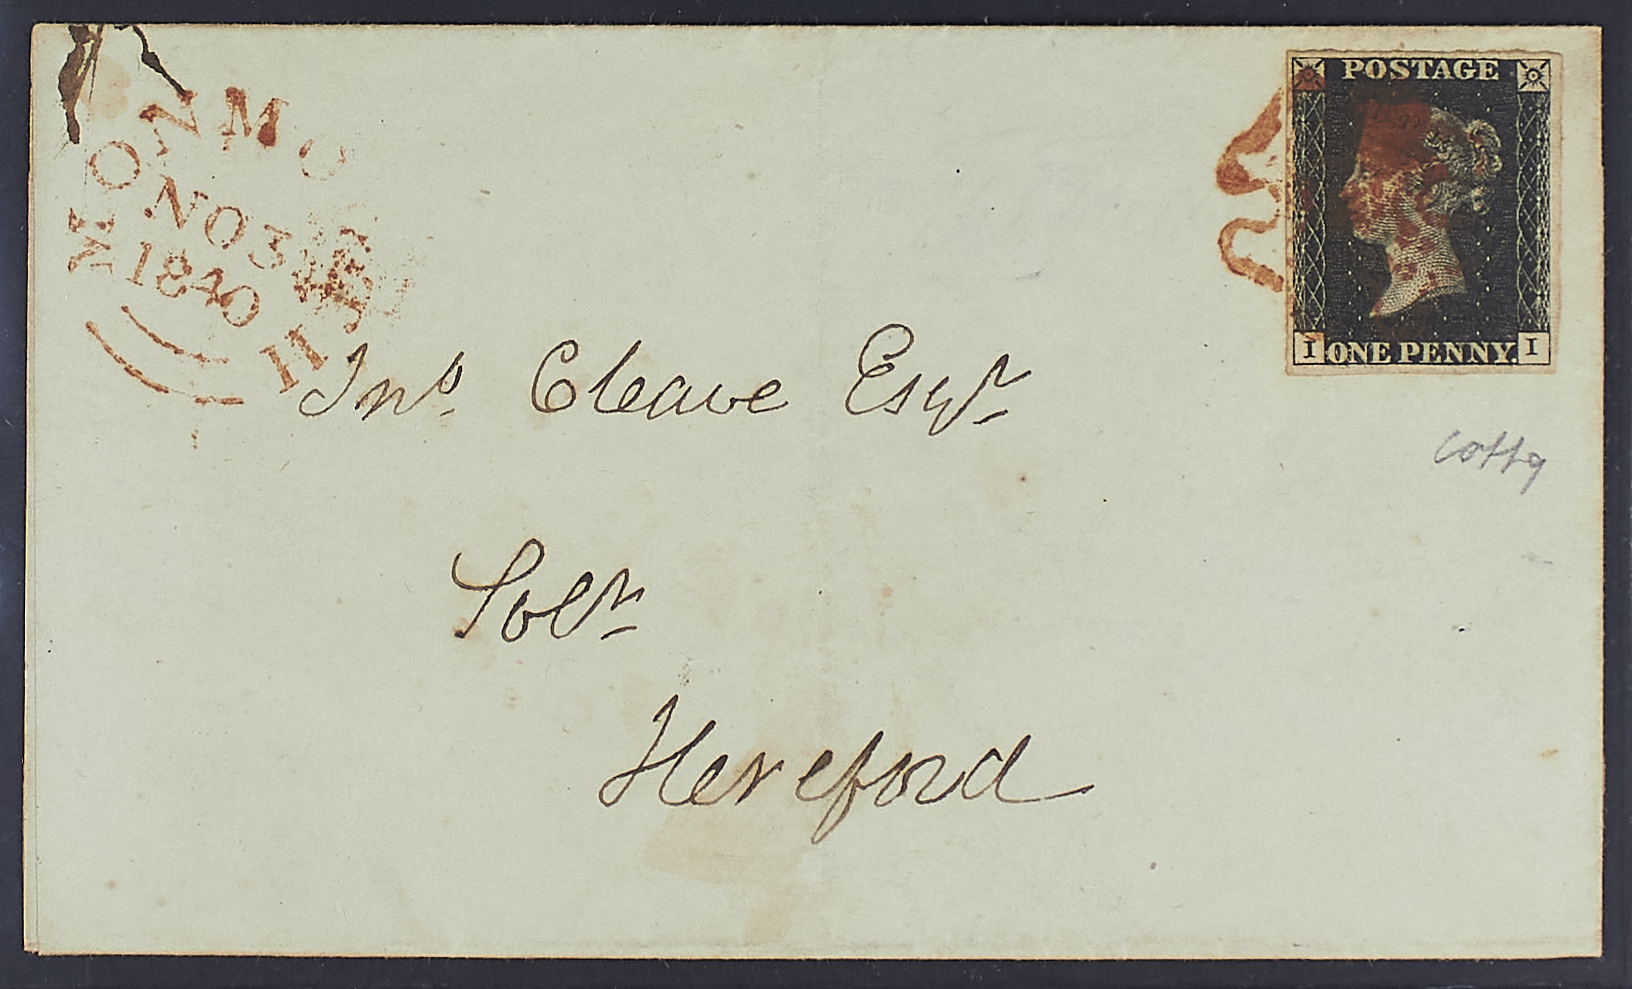 MONMOUTH
NO 3
1840
POSTAGE
I ONE PENNY. I
Jno. Cleave Esqr
Solr
Hereford